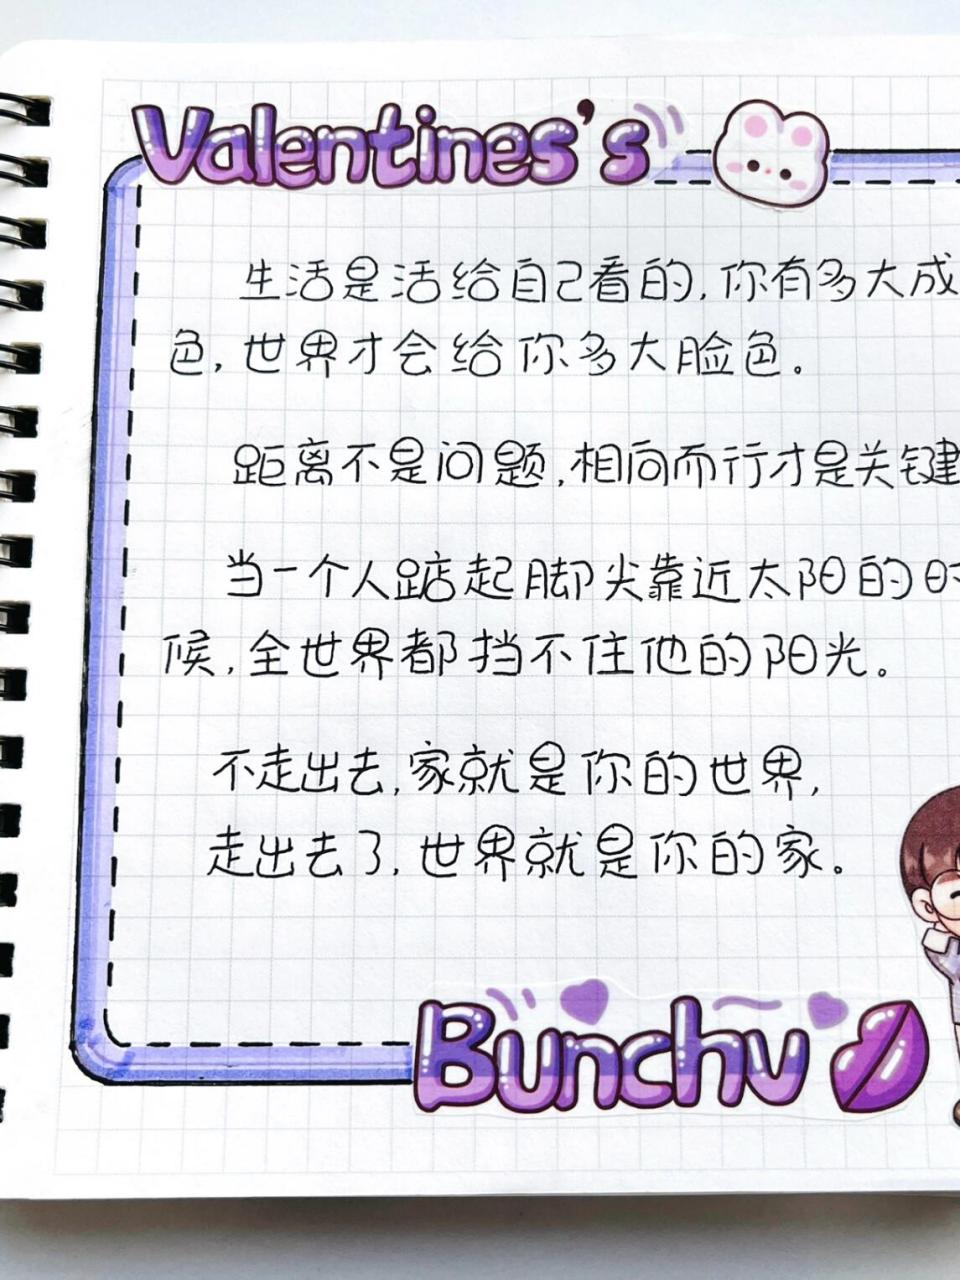 Valentines's
生活是活给自己看的,你有多大成
色,世界才会给你多大脸色。
距离不是问题,相向而行才是关键
当一个人踮起脚尖靠近太阳的时
候,全世界都挡不住他的阳光。
不走出去,家就是你的世界,
走出去了,世界就是你的家。
Bunchv